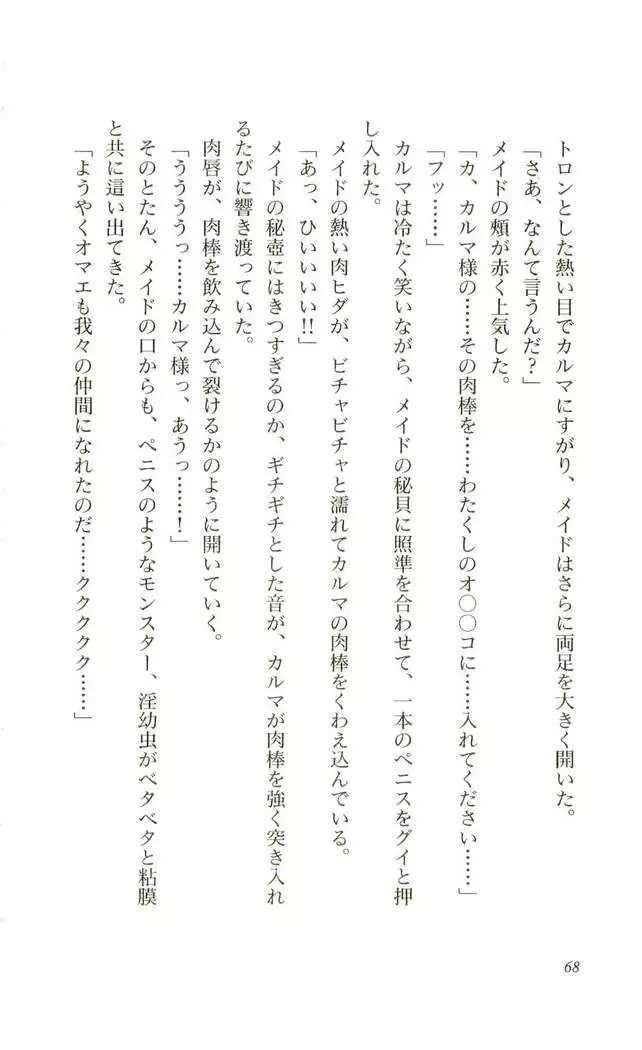 トロンとした熱い目でカルマにすがり、メイドはさらに両足を大きく開いた。
「さあ、なんて言うんだ？」
メイドの頬が赤く上気した。
「カ、カルマ様の……その肉棒を……わたくしのオ〇〇コに……入れてください……」
「フッ……」
カルマは冷たく笑いながら、メイドの秘貝に照準を合わせて、一本のペニスをグイと押
し入れた。
メイドの熱い肉ヒダが、ビチャビチャと濡れてカルマの肉棒をくわえ込んでいる。
「あっ、ひいいいい!!」
メイドの秘壺にはきつすぎるのか、ギチギチとした音が、カルマが肉棒を強く突き入れ
るたびに響き渡っていた。
肉唇が、肉棒を飲み込んで裂けるかのように開いていく。
「うううっ……カルマ様っ、あうっ……！」
そのとたん、メイドの口からも、ペニスのようなモンスター、淫幼虫がベタベタと粘膜
と共に這い出てきた。
「ようやくオマエも我々の仲間になれたのだ……ククククク……」
68